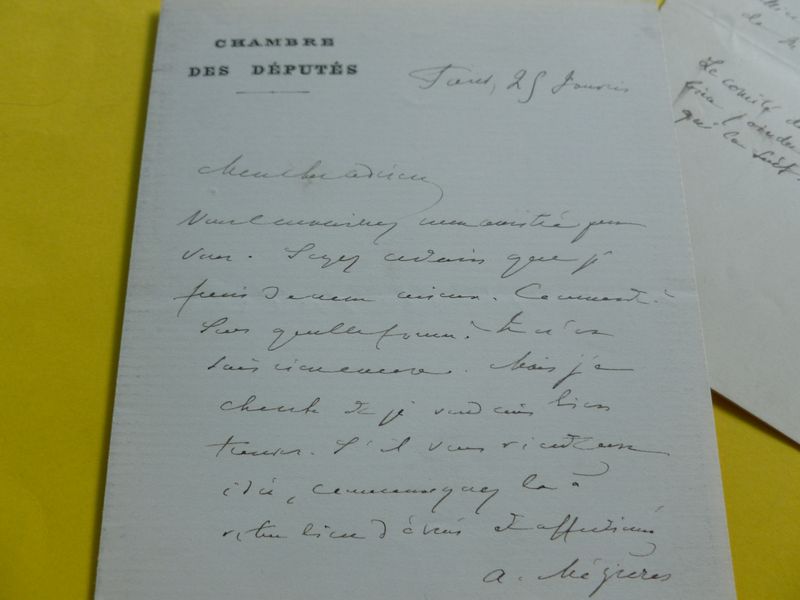 CHAMBRE
DES DÉPUTÉS
Paris, 25 Janvier
Mon cher
Vous connaissez mon amitié pour
vous. Soyez certain que je
ferai de mon mieux. Comment?
Sous quelle forme? Je n'en
sais rien encore. Mais je
cherche et je voudrais bien
trouver. S'il vous vient une
idée, communiquez la
bien dévoué et affectionné
A. Mézières
Le comité
qui la